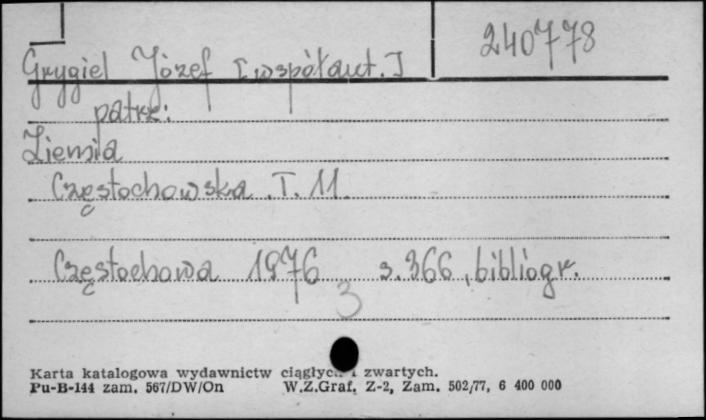 240778
Grygiel Józef [współaut.]
patrz:
Ziemia
Częstochowska. T. 11.
Częstochowa 1976 s. 366, bibliogr.
3
Karta katalogowa wydawnictw ciągłych i zwartych.
Pu-B-144 zam. 567/DW/On W.Z.Graf. Z-2, Zam. 502/77, 6 400 000